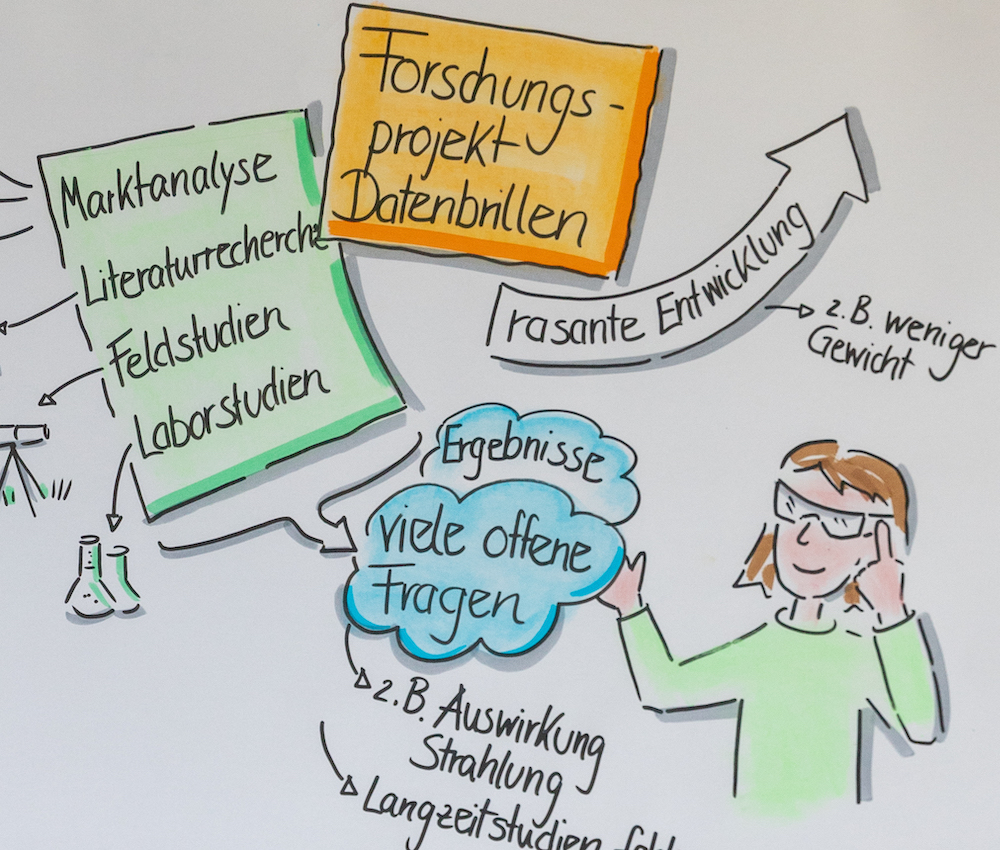 Forschungs-
projekt
Datenbrillen
Marktanalyse
Literaturrecherche
Feldstudien
Laborstudien
rasante Entwicklung
z.B. weniger
Gewicht
Ergebnisse
viele offene
Fragen
z.B. Auswirkung
Strahlung
Langzeitstudien